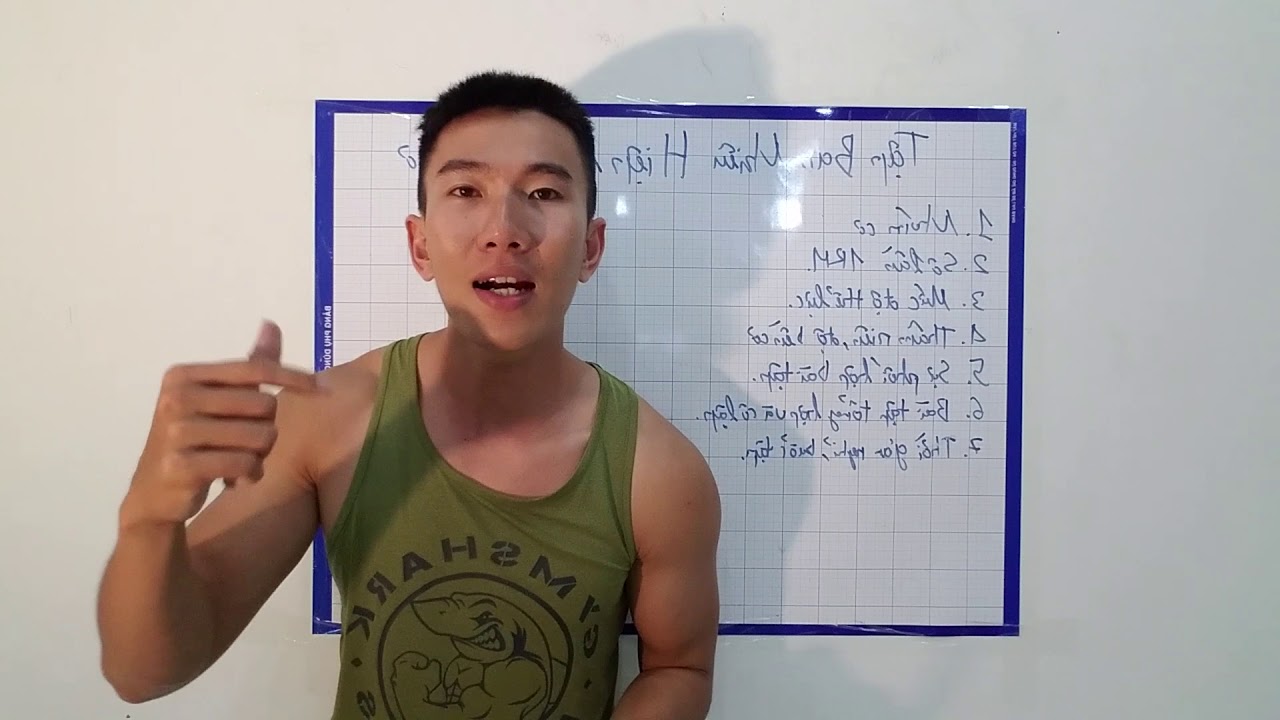 Tập Bao Nhiêu Hiệp
1. Nhóm cơ
2. Số lần 1RM.
3. Mức độ thể lực.
4. Thâm niên, độ bền cơ
5. Sự phối hợp bài tập.
6. Bài tập tổng hợp và cô lập.
7. Thời gian nghỉ, buổi tập.
BẢNG PHỤ DÙNG
GYMSHARK